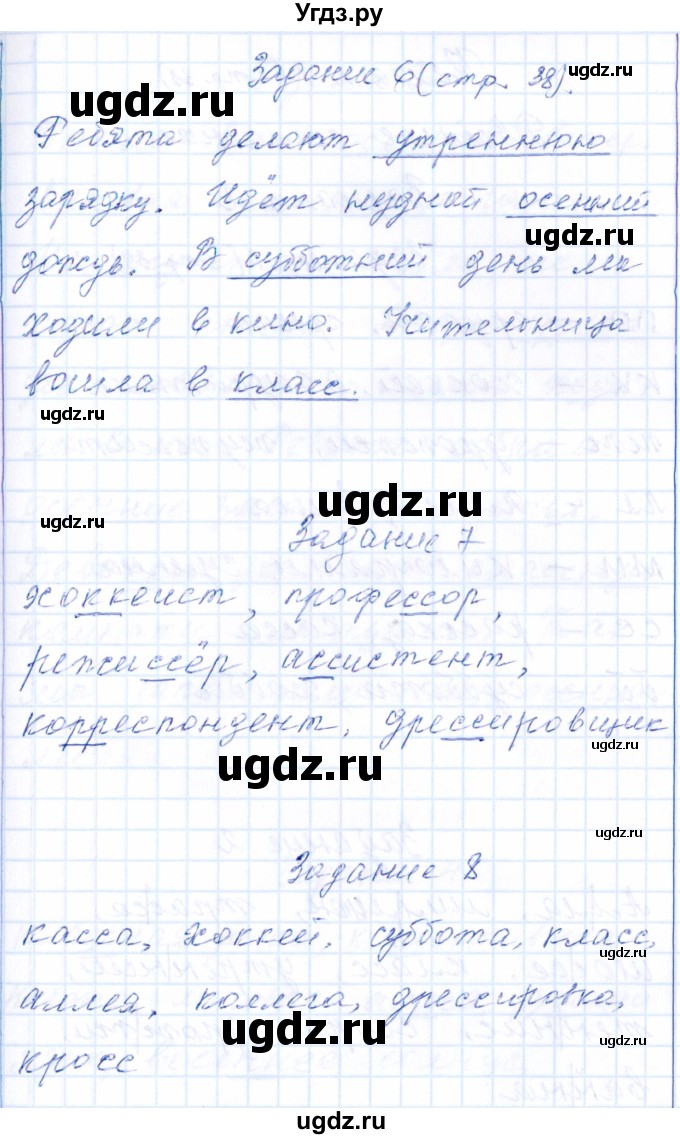 Угдз.ру
Задание 6 (стр. 38).
ugdz.ru
ugdz.ru
Ребята делают утреннюю
зарядку. Идёт нудной осенний
ugdz.ru
дождь. В субботний день мы
ходили в кино. Учительница
вошла в класс.
ugdz.ru
ugdz.ru
ugdz.ru
Задание 7
хоккеист, профессор,
режиссёр, ассистент,
корреспондент, дрессировщик
ugdz.ru
ugdz.ru
ugdz.ru
Задание 8
касса, хоккей, суббота, класс,
ugdz.ru
аллея, коллега, дрессировка,
ugdz.ru
ugdz.ru
кросс
ugdz.ru